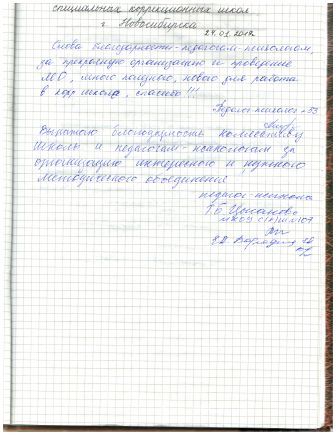 специальных коррекционных школ
г. Новосибирска
24.01.2018
Слова благодарности педагогам-психологам,
за прекрасную организацию и проведение
МО, много полезного, нового для работы
в корр школах, спасибо!!!
Педагог-психолог
Выражаю благодарность коллективу
школы и педагогам-психологам за
организацию интересного и нужного
методического объединения
педагог-психолог
Т.Б
МКОУ С(К)Ш №107